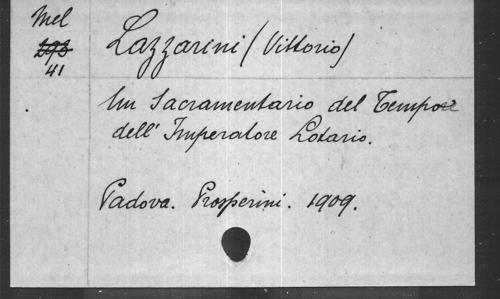 Mel
293
41
Lazzarini (Vittorio)
Un Sacramentario del Tempo
dell' Imperatore Lotario.
Padova. Prosperini. 1909.